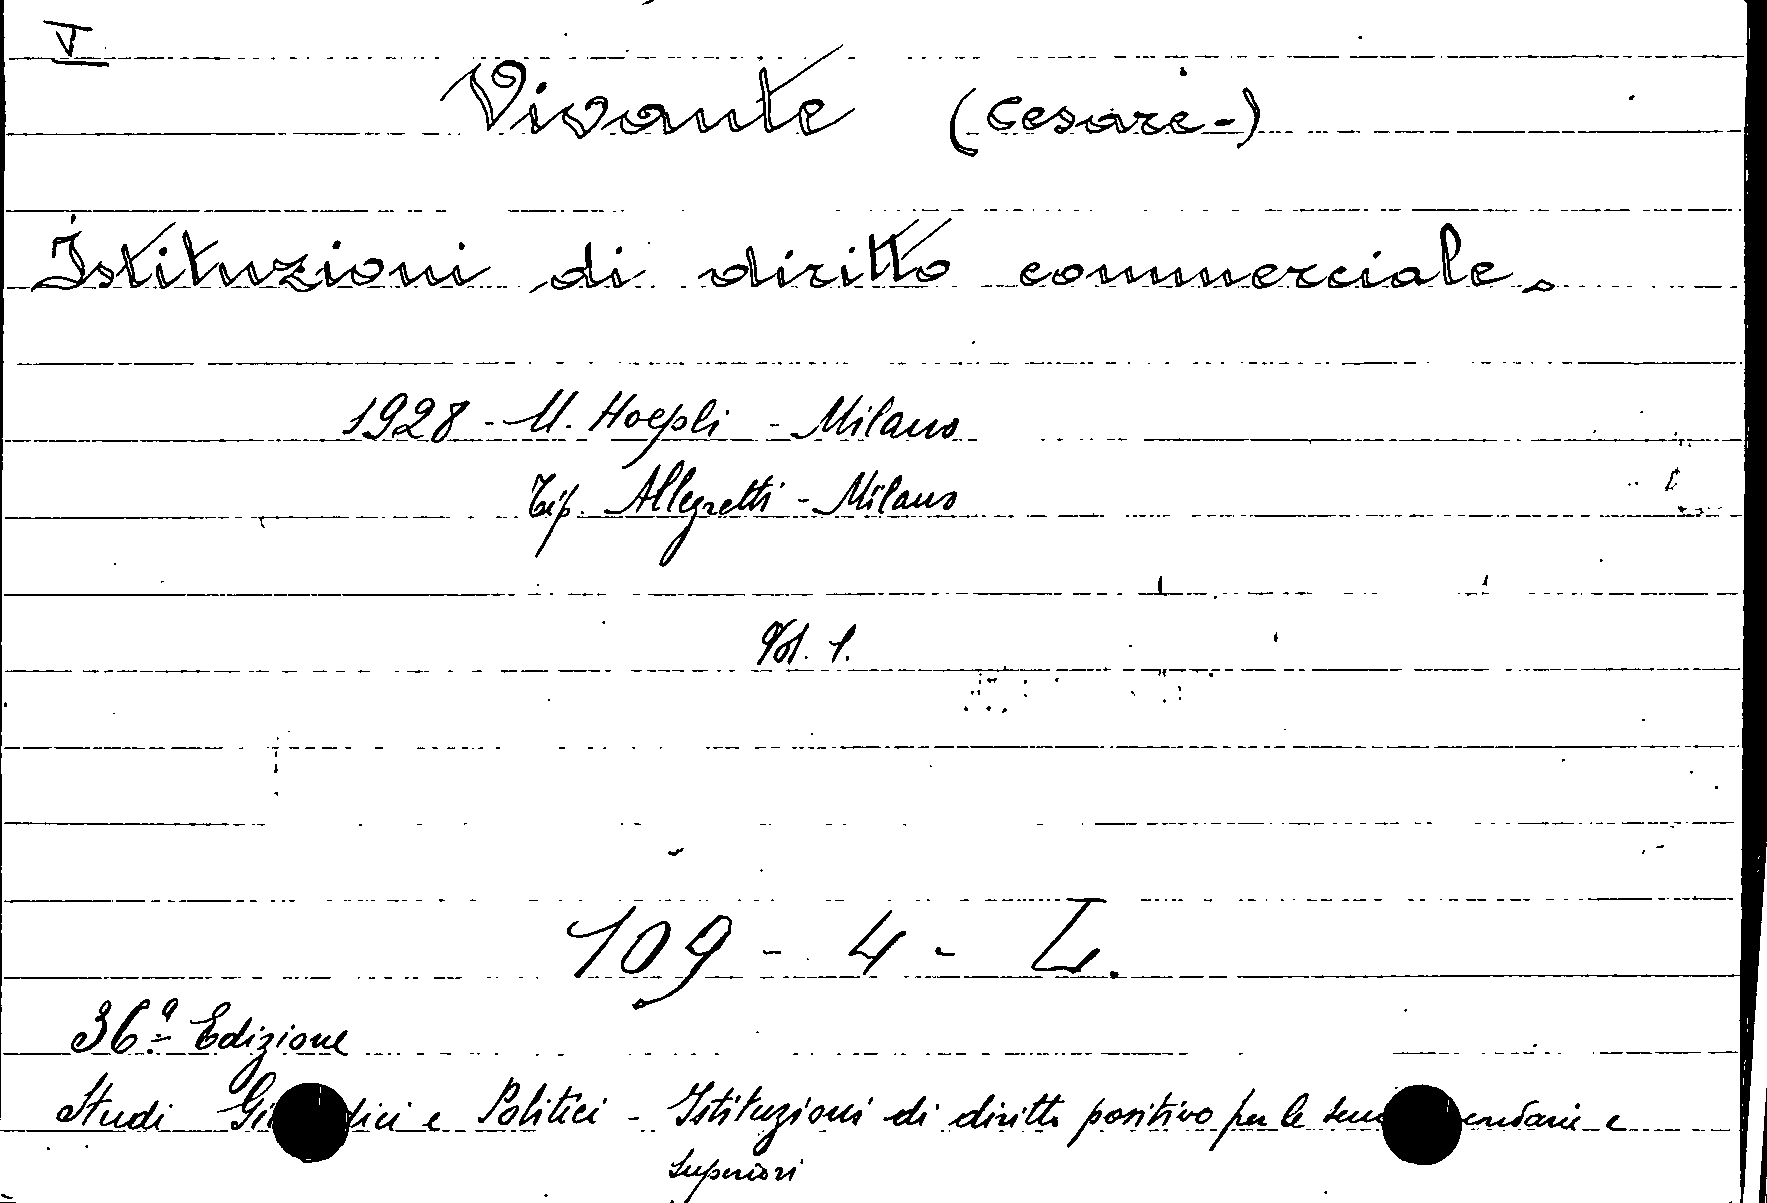 V
Vivante (Cesare-)
Istituzioni di diritto commerciale.
1928 - U. Hoepli - Milano
Tip. Allegretti - Milano
Vol. 1.
109 - 4 - L.
36ª Edizione
Studi Gi dici e Politici - Istituzioni di diritto positivo per le endarie e
superiori